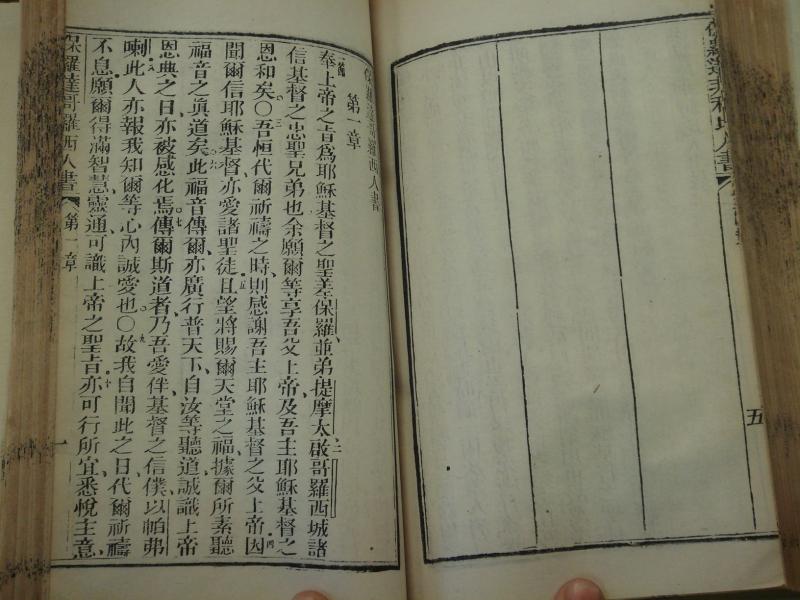 人書
五
保羅達哥羅西人書
第一章
一節奉上帝之旨爲耶穌基督之聖差保羅、並弟提摩太、二啟哥羅西城諸
信基督之忠聖兄弟也、余願爾等享吾父上帝、及吾主耶穌基督之
恩和矣〇三吾恒代爾祈禱之時、則感謝吾主耶穌基督之父上帝、四因
聞爾信耶穌基督、亦愛諸聖徒、五且望將賜爾天堂之福、據爾所素聽
福音之眞道矣、六此福音傳爾、亦廣行普天下、自汝等聽道、誠識上帝
恩典之日、亦被感化焉、七傳爾斯道者、乃吾愛伴、基督之信僕、以帕弗
喇、八此人亦報我知爾等心內誠愛也〇九故我自聞此之日、代爾祈禱
不息、願爾得滿智慧、靈通、可識上帝之聖旨、十亦可行所宜、悉悅主意、
保羅達哥羅西人書 第一章 一